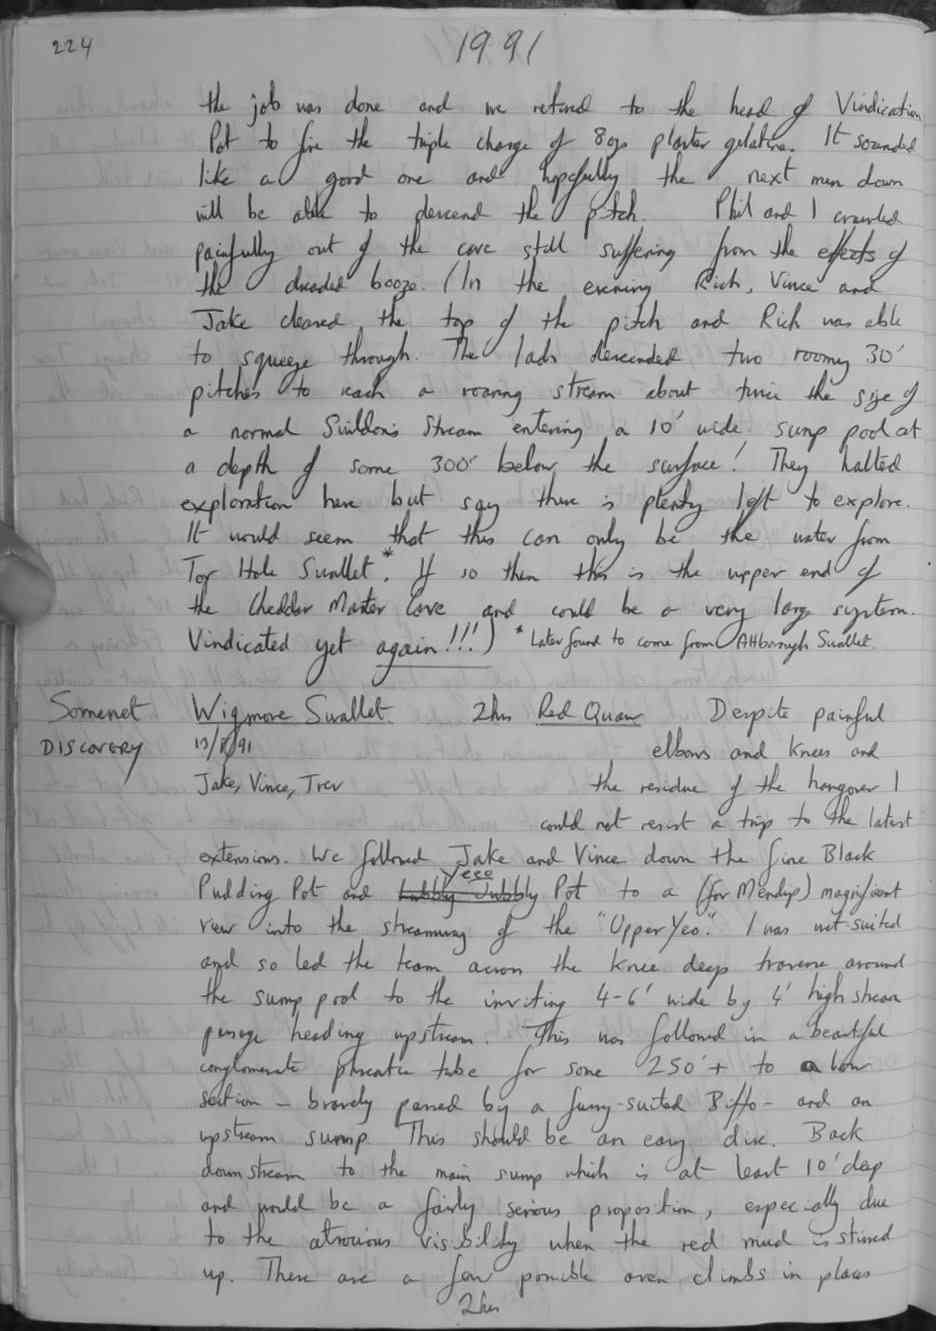 224
1991
the job was done and we retired to the head of Vindication
Pot to fire the triple charge of 8ozs plaster gelatine. It sounded
like a good one and hopefully the next men down
will be able to descend the pitch. Phil and I crawled
painfully out of the cave still suffering from the effects of
the dreaded booze. (In the evening Rich, Vince and
Jake cleared the top of the pitch and Rich was able
to squeeze through. The lads descended two roomy 30'
pitches to reach a roaring stream about twice the size of
a normal Swildon's Stream entering a 10' wide sump pool at
a depth of some 300' below the surface! They halted
exploration here but say there is plenty left to explore.
It would seem that this can only be the water from
Tor Hole Swallet*. If so then this is the upper end of
the Cheddar Master Cave and could be a very large system.
Vindicated yet again!!!) * Later found to come from Attborough Swallet.
Somerset Wigmore Swallet 2hrs Red Quar Despite painful
DISCOVERY /91 elbows and knees and
Jake, Vince, Trev the residue of the hangover I
could not resist a trip to the latest
extensions. We followed Jake and Vince down the fine Black
Yeee
Pudding Pot and lubbly Jubbly Pot to a (for Mendip) magnificent
view into the streamway of the "Upper Yeo". I was wet-suited
and so led the team across the knee deep traverse around
the sump pool to the inviting 4-6' wide by 4' high stream
passage heading upstream. This was followed in a beautiful
conglomerate phreatic tube for some 250'+ to a low
section - bravely passed by a furry-suited Biffo - and an
upstream sump. This should be an easy dive. Back
downstream to the main sump which is at least 10' deep
and would be a fairly serious proposition, especially due
to the atrocious visibility when the red mud is stirred
up. There are a few possible aven climbs in places
2hrs